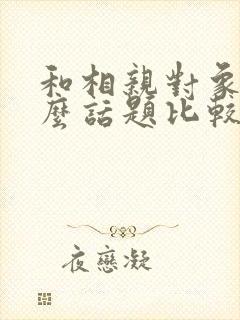 和相親對象
麼話題比較
夜戀凝